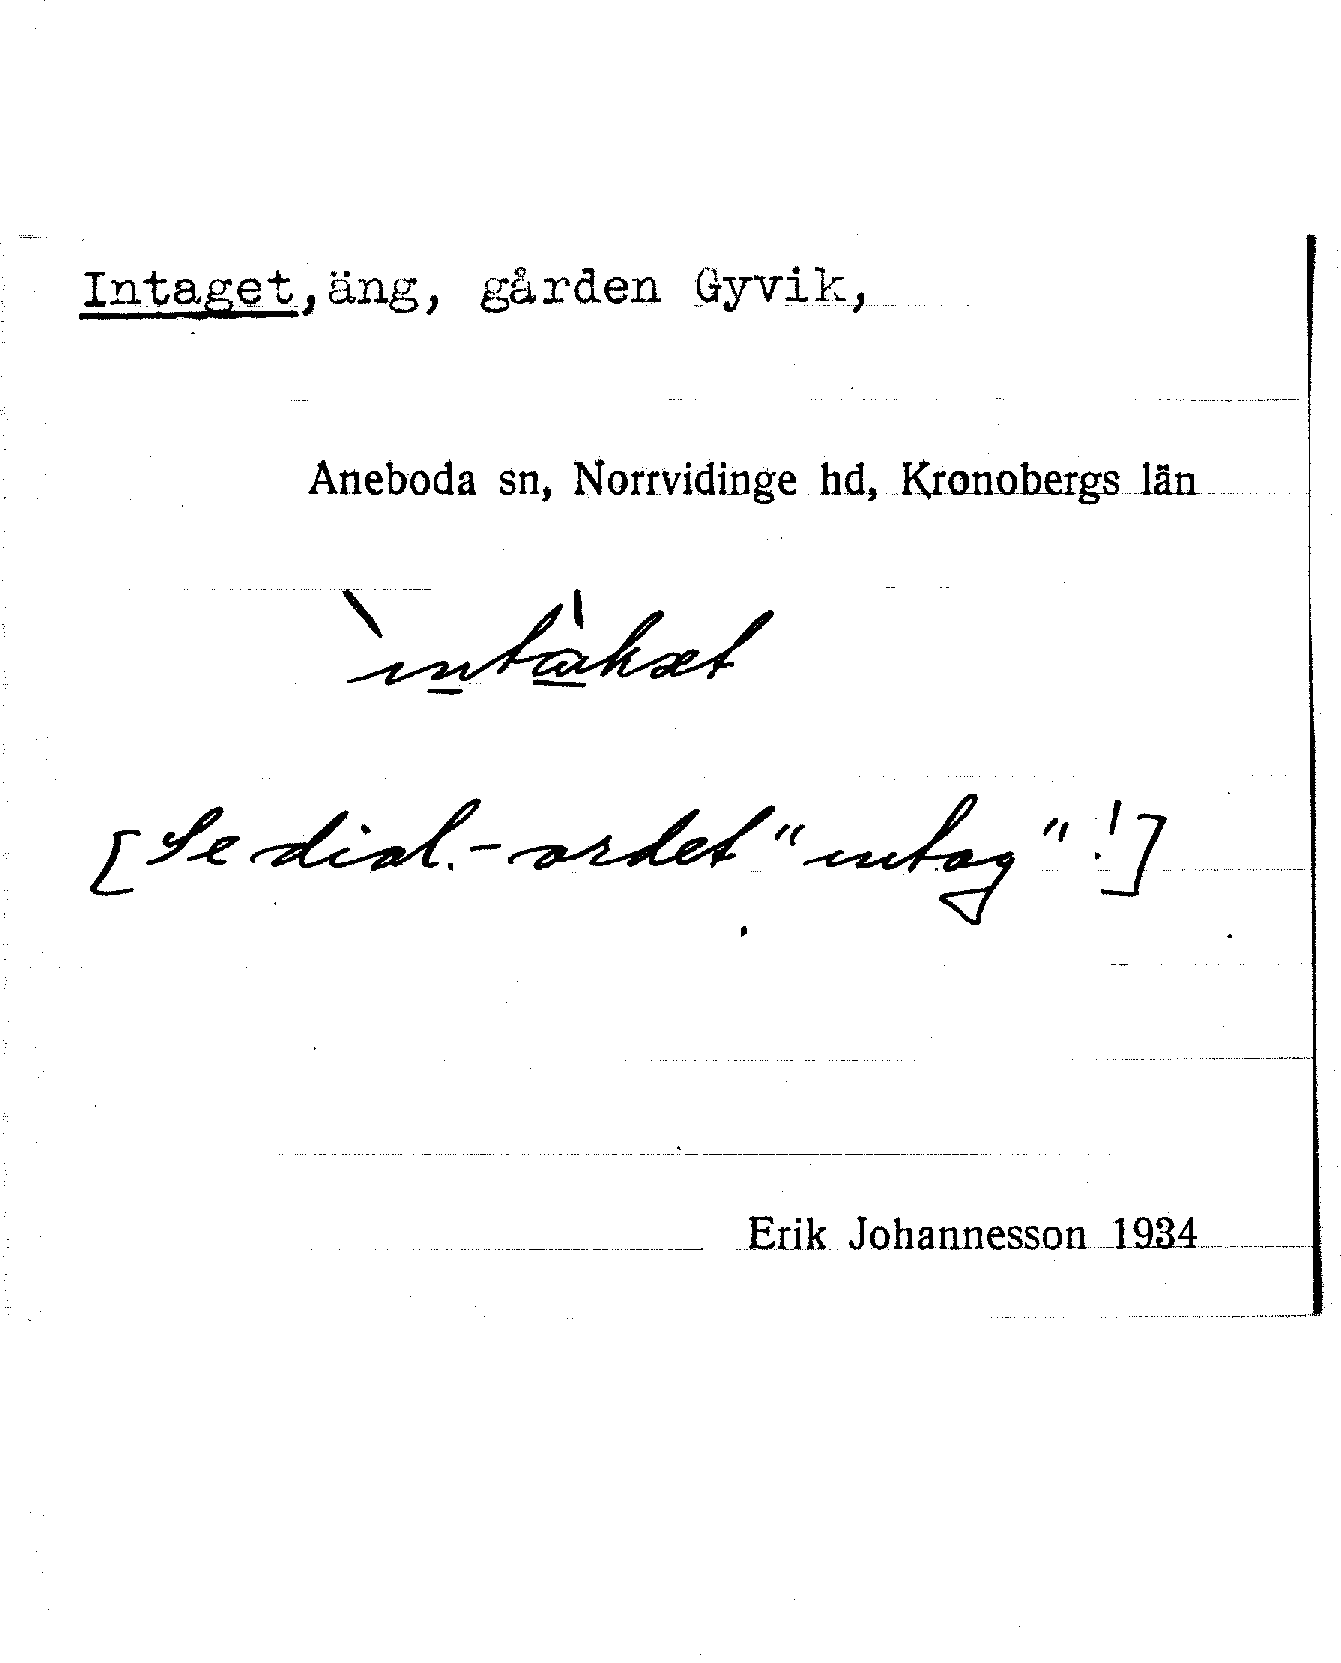 Intaget, äng, gården Gyvik,
Aneboda sn, Norrvidinge hd, Kronobergs län
ìntàkæt
[Se dial.-ordet "intag"!]
Erik Johannesson 1934